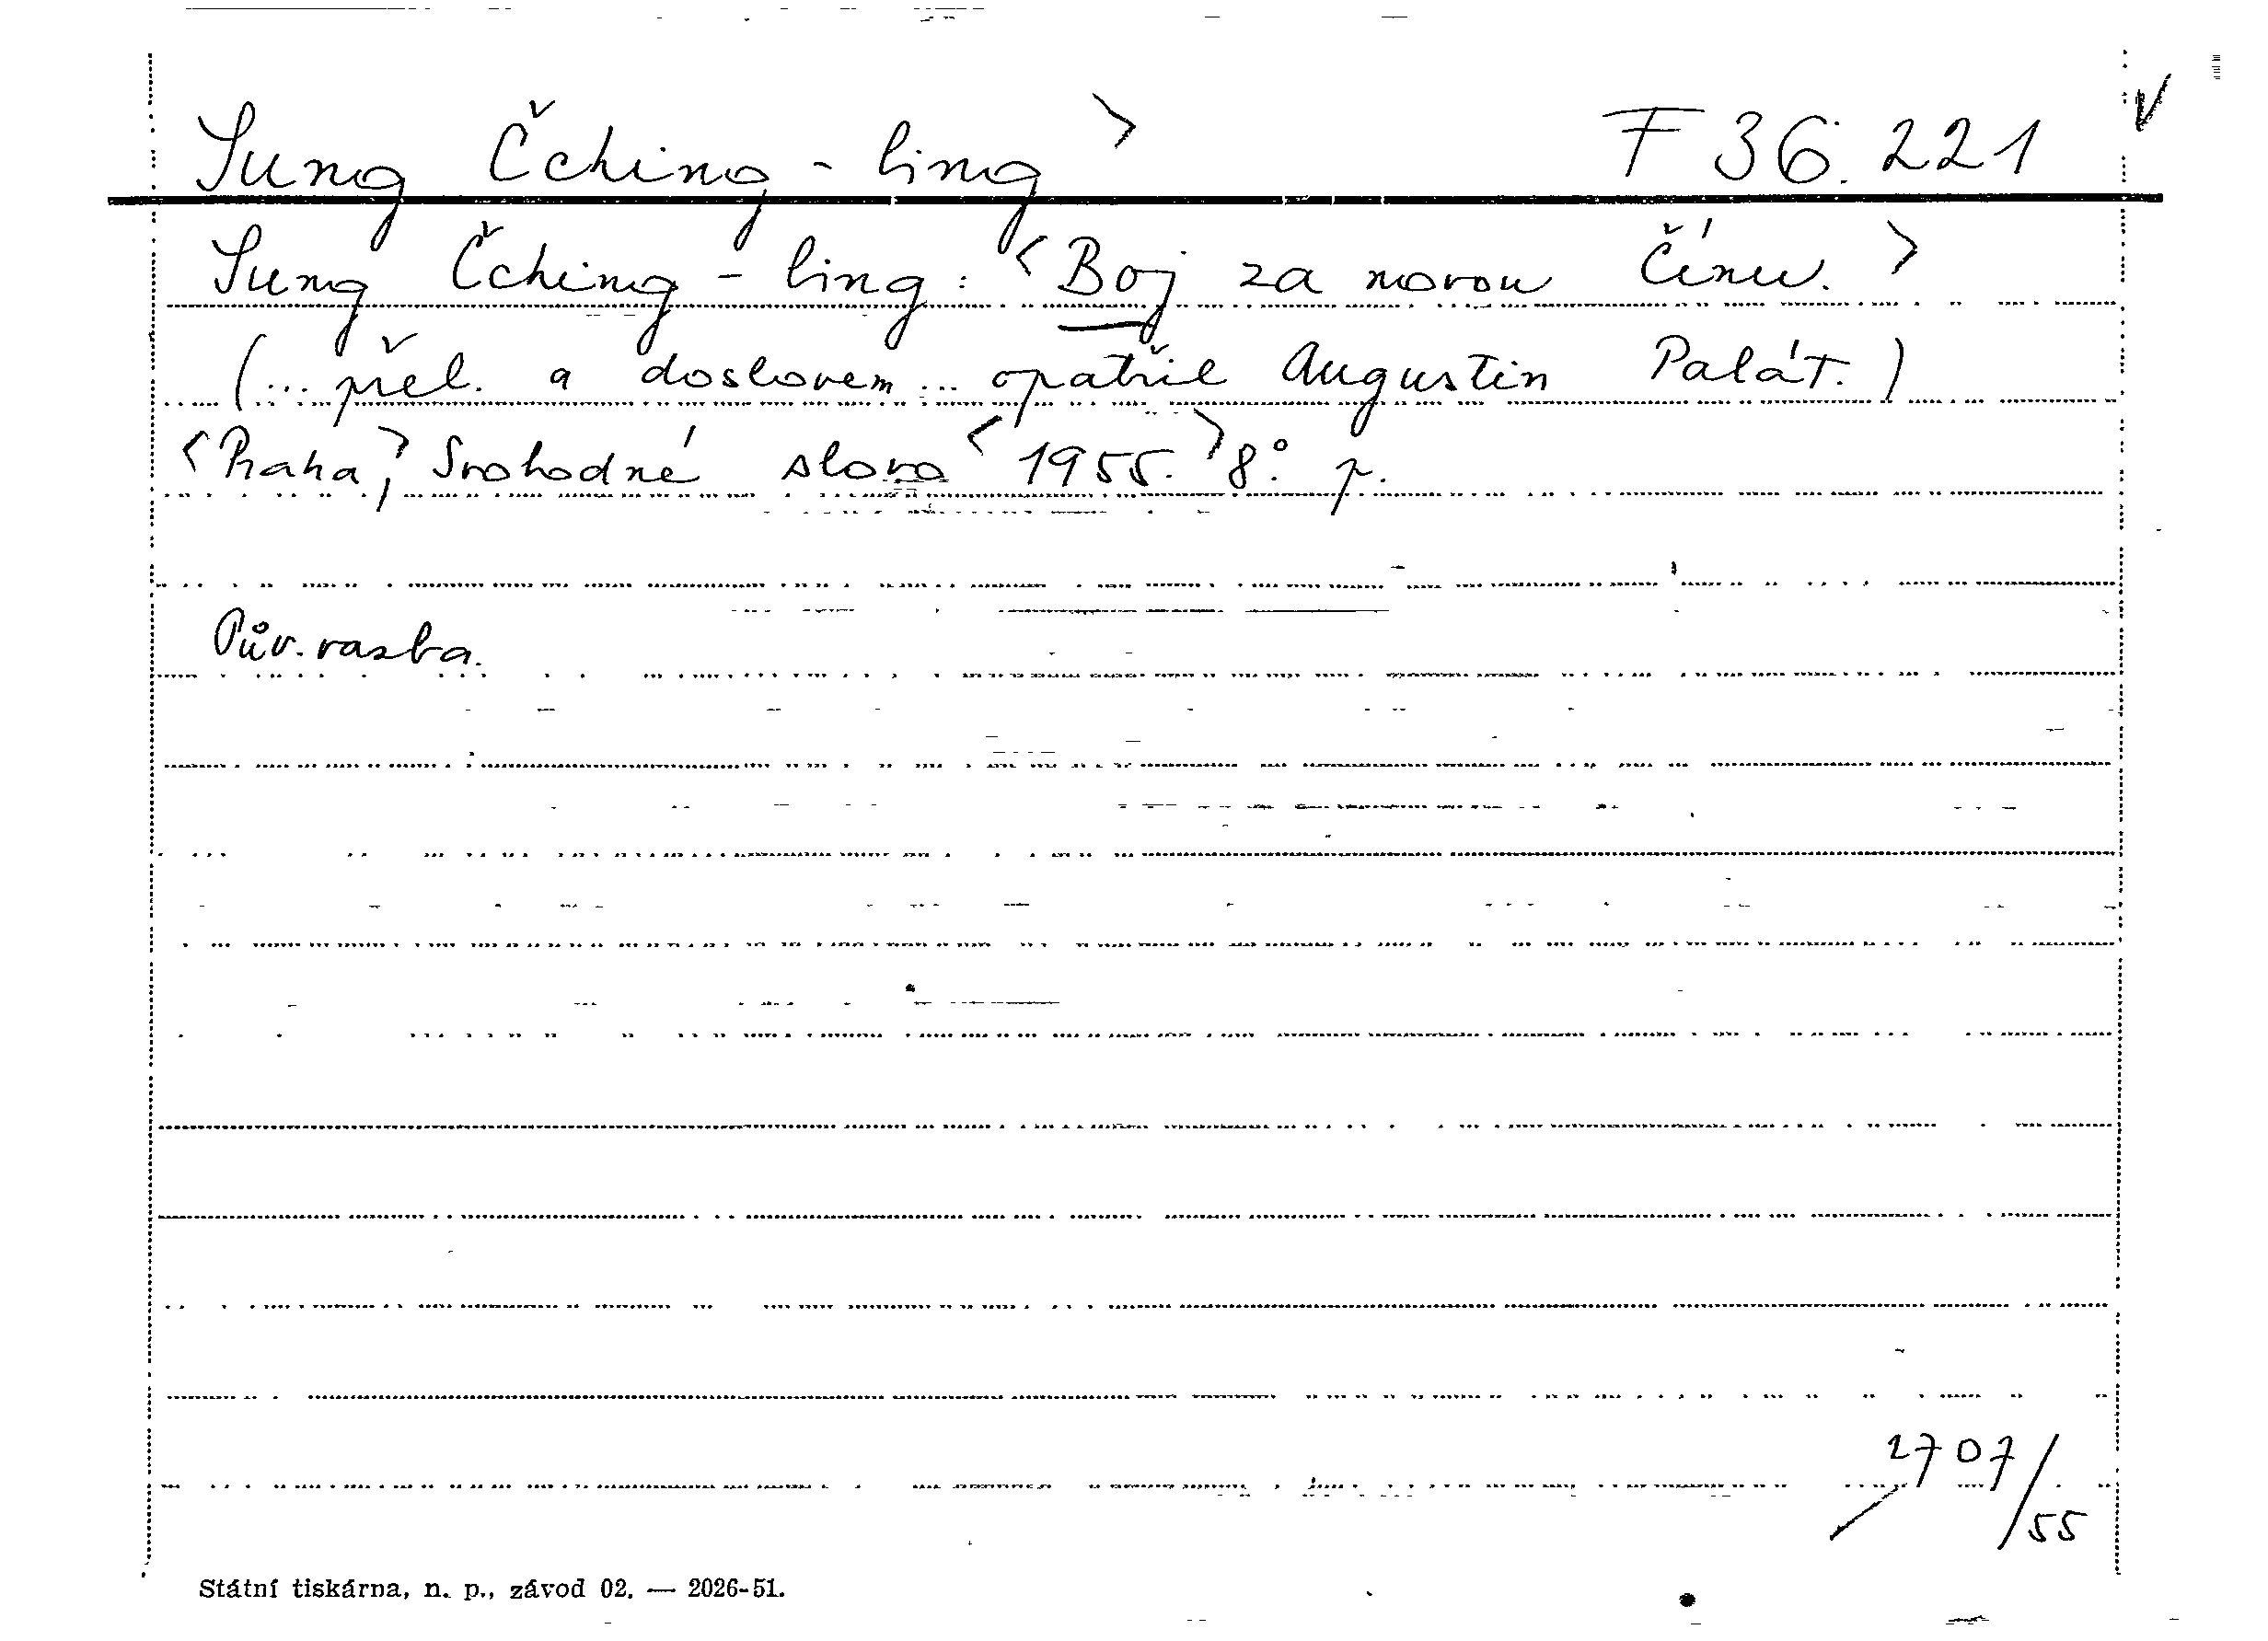 Sung Čching-ling > F 36.221 √
Sung Čching-ling: <Boj za novou Čínu.>
(...přel. a doslovem... opatřil Augustin Palát.)
<Praha,> Svobodné slovo <1955.> 8° p.
Pův. vazba.
2707/55
Státní tiskárna, n. p., závod 02. — 2026-51.